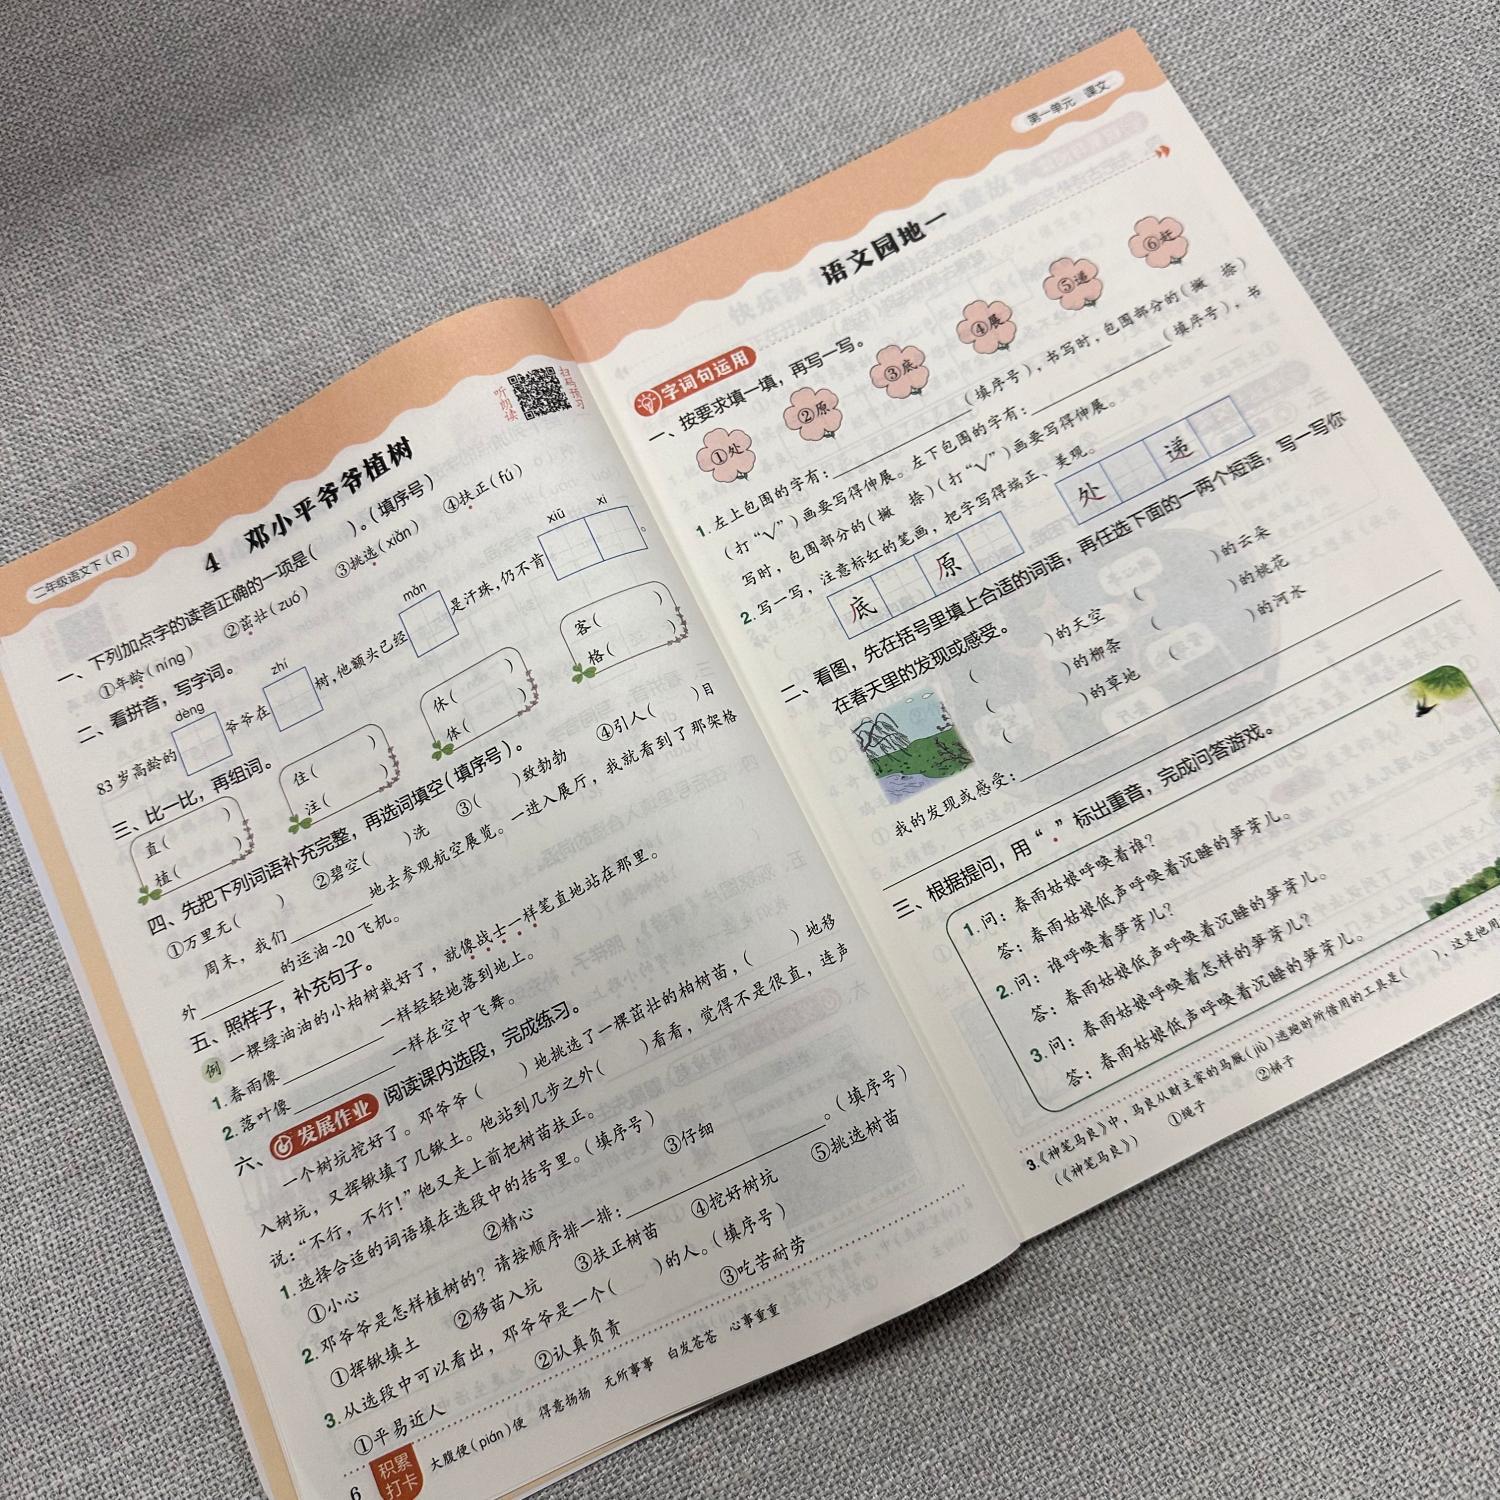 二年级语文下(R)
4 邓小平爷爷植树
听朗读
扫码预习
一、下列加点字的读音正确的一项是( )。(填序号)
①年龄(nínɡ) ②茁壮(zuó) ③挑选(xiǎn) ④扶正(fú)
二、看拼音，写字词。
dènɡ zhí mǎn xiū xi
83岁高龄的 爷爷在 树，他额头已经 是汗珠，仍不肯 。
三、比一比，再组词。
直( ) 住( ) 休( ) 客( )
植( ) 注( ) 体( ) 格( )
四、先把下列词语补充完整，再选词填空(填序号)。
①万里无( ) ②碧空( )洗 ③( )致勃勃 ④引人( )目
周末，我们 地去参观航空展览。一进入展厅，我就看到了那架格
外 的运油-20飞机。
五、照样子，补充句子。
例 一棵绿油油的小柏树栽好了，就像战士一样笔直地站在那里。
1.春雨像 一样轻轻地落到地上。
2.落叶像 一样在空中飞舞。
发展作业
六、阅读课内选段，完成练习。
一个树坑挖好了。邓爷爷( )地挑选了一棵茁壮的柏树苗，( )地移
入树坑，又挥锹填了几锹土。他站到几步之外( )看看，觉得不是很直，连声
说：“不行，不行！”他又走上前把树苗扶正。
1.选择合适的词语填在选段中的括号里。(填序号)
①小心 ②精心 ③仔细
2.邓爷爷是怎样植树的？请按顺序排一排： 。(填序号)
①挥锹填土 ②移苗入坑 ③扶正树苗 ④挖好树坑 ⑤挑选树苗
3.从选段中可以看出，邓爷爷是一个( )的人。(填序号)
①平易近人 ②认真负责 ③吃苦耐劳
6
积累打卡
大腹便(pián)便 得意扬扬 无所事事 白发苍苍 心事重重
第一单元 课文
语文园地一
字词句运用
一、按要求填一填，再写一写。
①处 ②原 ③底 ④展 ⑤递 ⑥赶
1.左上包围的字有： (填序号)，书写时，包围部分的(撇 捺)
(打“√”)画要写得伸展。左下包围的字有： (填序号)，书
写时，包围部分的(撇 捺)(打“√”)画要写得伸展。
2.写一写，注意标红的笔画，把字写得端正、美观。
底 原 处 递
二、看图，先在括号里填上合适的词语，再任选下面的一两个短语，写一写你
在春天里的发现或感受。
( )的天空 ( )的云朵
( )的柳条 ( )的桃花
( )的草地 ( )的河水
我的发现或感受：
三、根据提问，用“.”标出重音，完成问答游戏。
1.问：春雨姑娘呼唤着谁？
答：春雨姑娘低声呼唤着沉睡的笋芽儿。
2.问：谁呼唤着笋芽儿？
答：春雨姑娘低声呼唤着沉睡的笋芽儿。
3.问：春雨姑娘呼唤着怎样的笋芽儿？
答：春雨姑娘低声呼唤着沉睡的笋芽儿。
3.《神笔马良》中，马良从财主家的马厩(jiù)逃跑时所借用的工具是( )，这是他用
(《神笔马良》) ①绳子 ②梯子